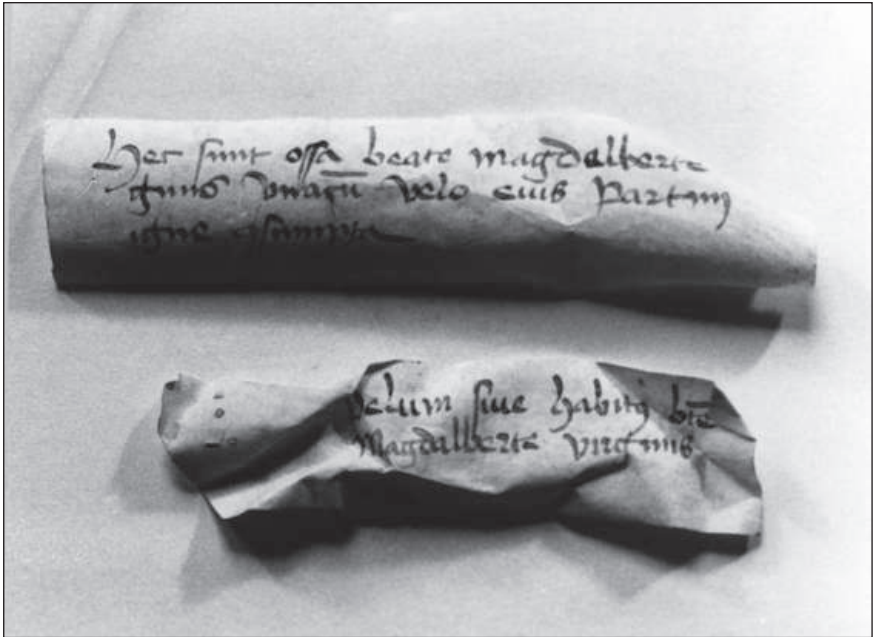 Hec sunt ossa beate magdalberte
velo eius Partim
igne
velum siue habitus bte
Magdalberte virginis